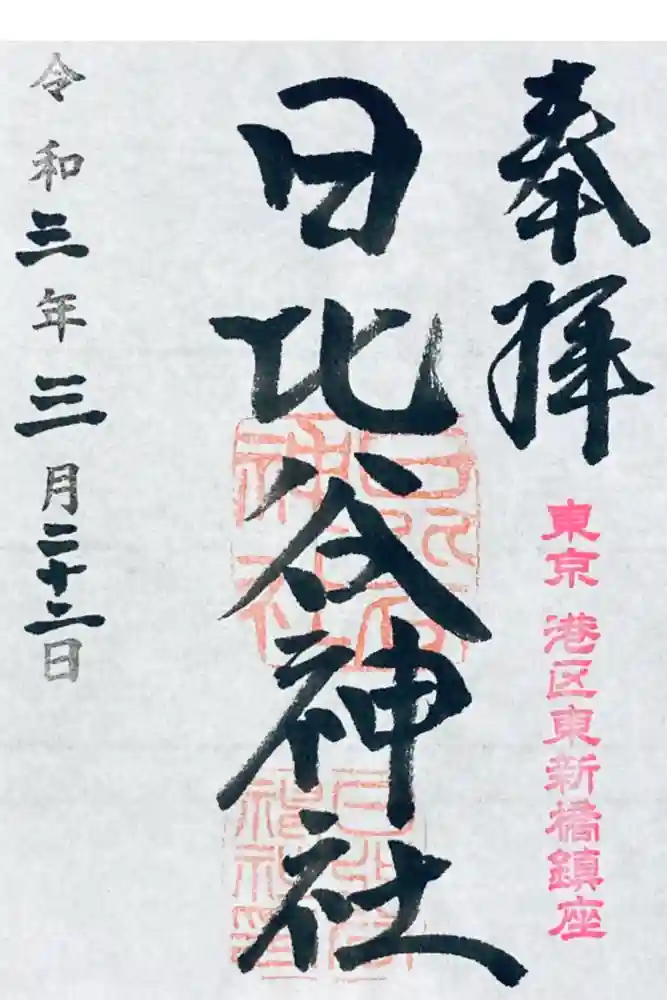 奉拝
東京 港区東新橋鎮座
日比谷神社
令和三年三月二十二日